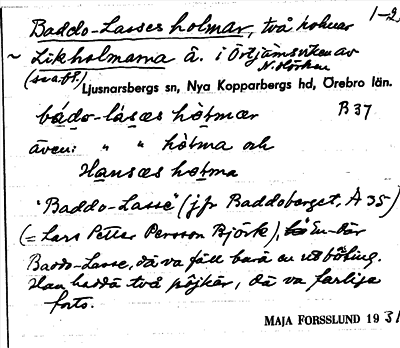 1-2
Baddo-Lasses holmar, två holmar
~ Likholmarna å. i Örtjärnsviken av
(s.o.a.bl.) N. Hörken
Ljusnarsbergs sn, Nya Kopparbergs hd, Örebro län.
bádo-lásæs hòlmær B 37
även: " " hòlma och
Hansæs holma
"Baddo-Lasse" (jfr Baddoberget, A 35)
(= Lars Petter Persson Björk), En-där
Baddo-Lasse, dä va fäll bara en utböling.
Han hadda två pöjkär, dä va farliga
forts.
MAJA FORSSLUND 1931